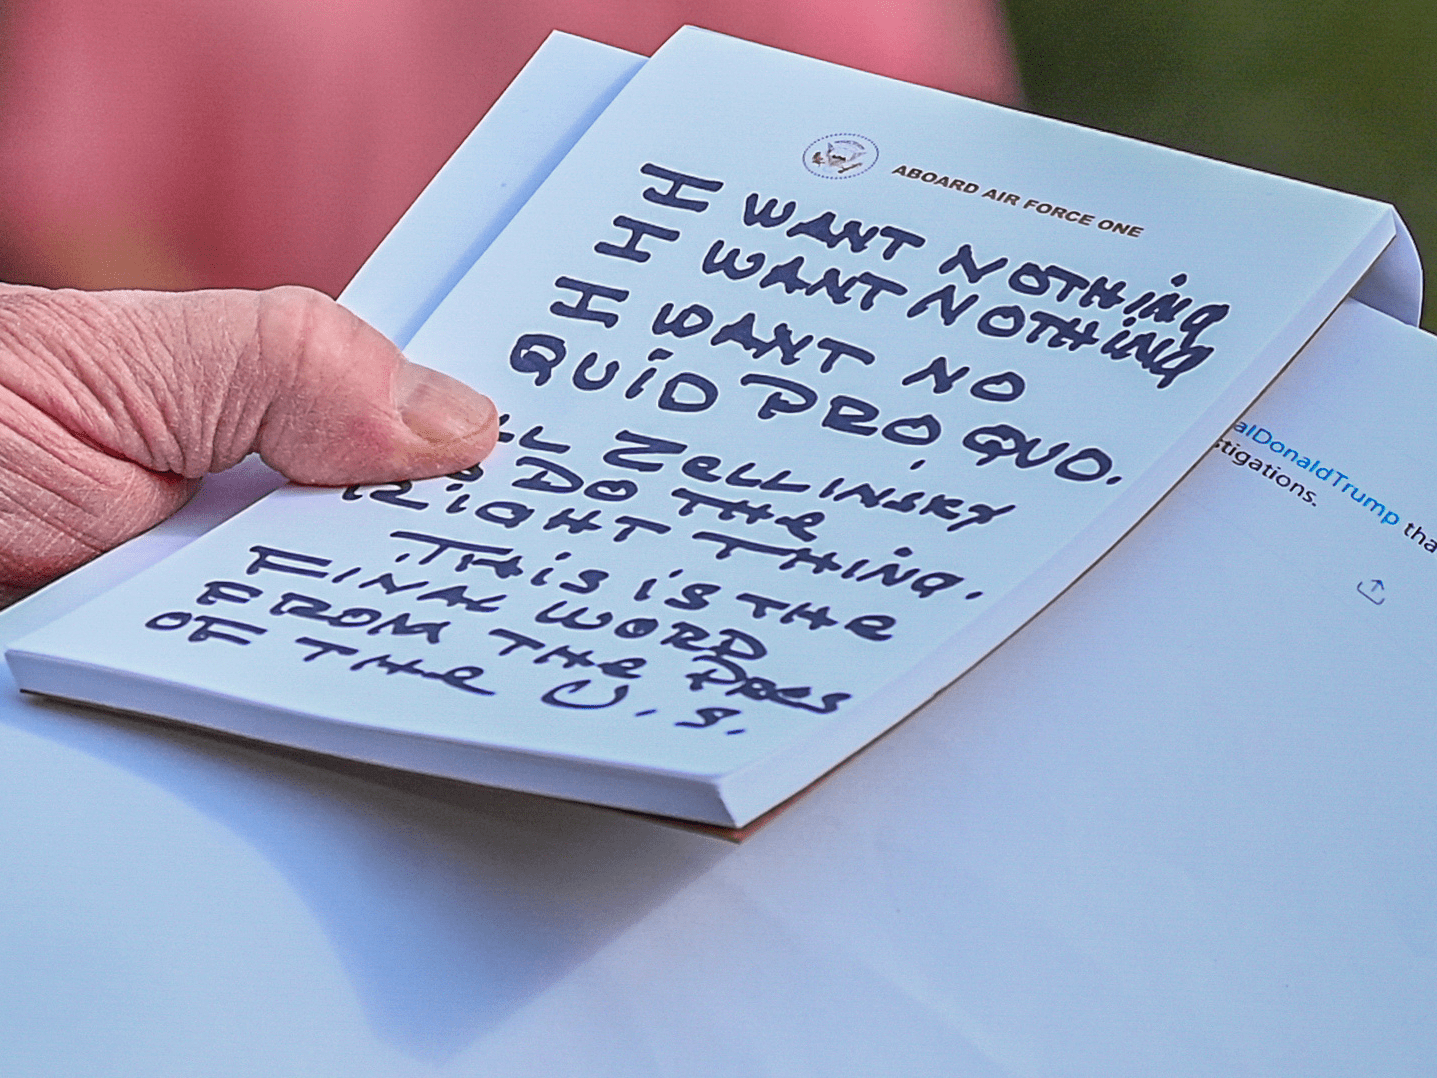 ABOARD AIR FORCE ONE
I WANT NOTHING
I WANT NOTHING
I WANT NO
QUID PRO QUO.
LL ZELLINSKY
DO THE
RIGHT THING.
THIS IS THE
FINAL WORD
FROM THE PRES
OF THE U.S.
alDonaldTrump tha
stigations.